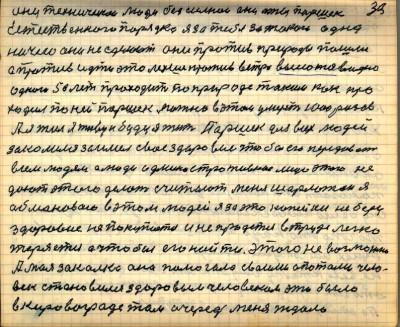 39
они технически люди бессильны они Паршек
естественного порядка я за тебя за такого одна
ничего они не сделают они против природы пошли
а против идти это мешки против ветра
одного 50 лет проходит по природе таким как про
ходил по ней паршек можно в этом умереть 1000 разов
А я жил я живу и буду я жить Паршек для всех людей
закаляя занимался своё здоровие это бы его передавать
всем людям а люди административные лица этого не
делают этого делать считают меня шарлатан я
обманываю в этом людей я за это копейки не беру
здоровие не покупается и не продается в труде легко
теряется а чтобы его найти. Этого не возможно
А моя закалка она помогала своими опытами чело-
век становился здоровым человеком это было
в кировограде там очередь меня ждала